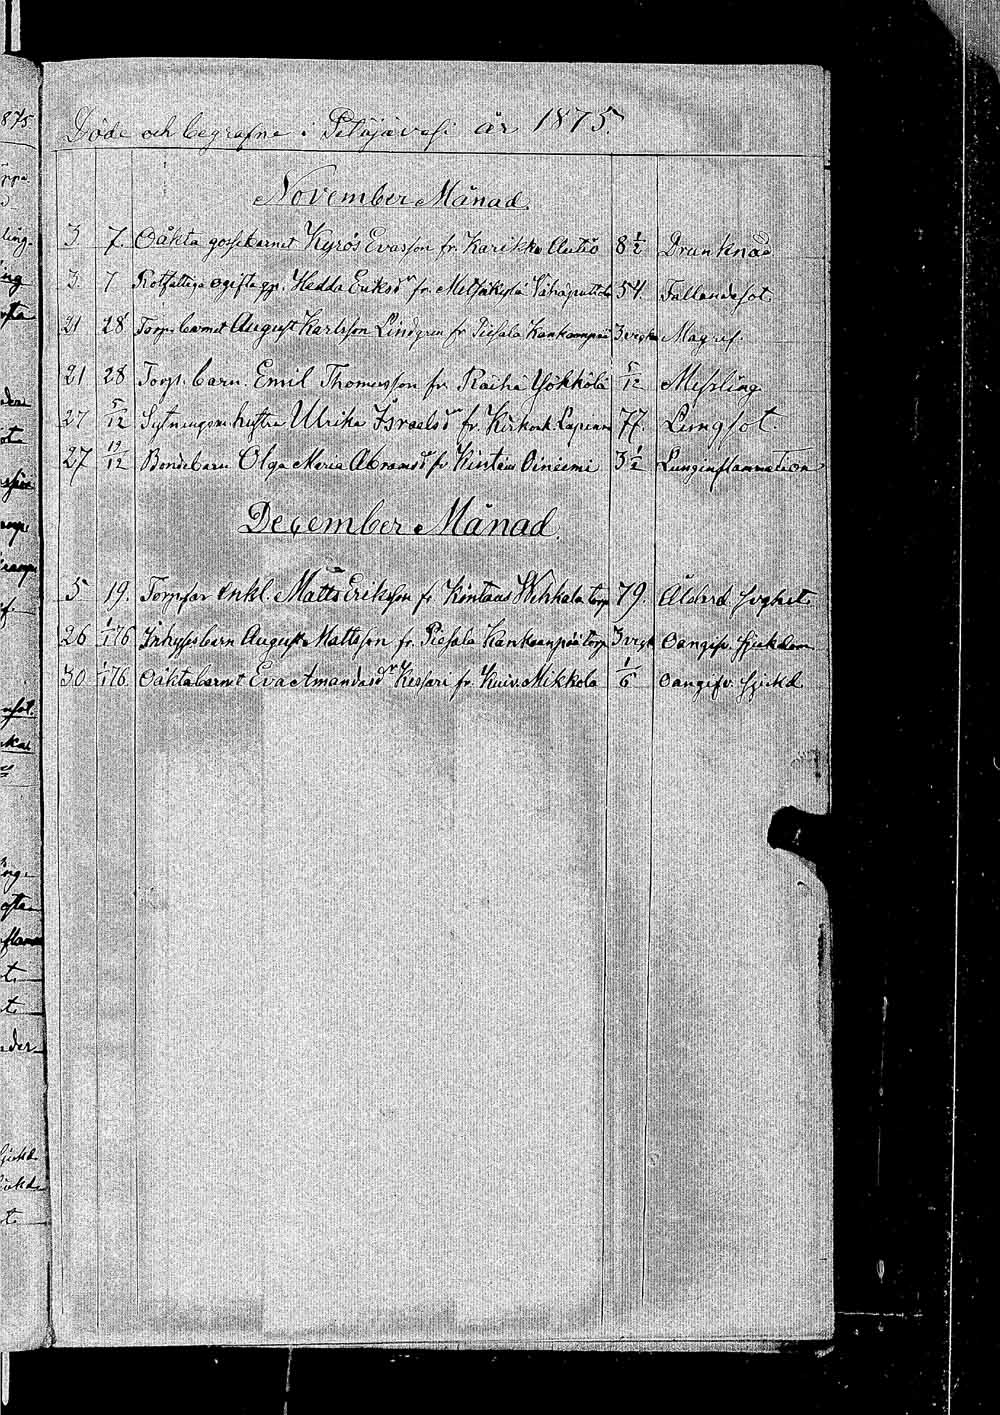 Döde och begrafne i Petäjävesi år 1875.
November Månad.
3. 7. Oäkta gossebarnet Kyrös Evasson fr. Karikko Autio 8 1/2 Drunknad
3. 7 Rotfattiga ogifta qp. Hedda Eriksdr fr. Metsäkylä 54. Fallandesot
21 28 Torp. barnet August Karlsson Lindgren fr Piesala Kankaanpää 3 veckor Magref.
21 28 Torp. barn. Emil Thomasson fr Räihä Ylökkölä 5/12 Messling
27 5/12 Sytningsm. hustru Ulrika Israelsdr fr. Kirkock. Lapinm 77. Lungsot.
27 19/12 Bondebarn Olga Maria Abramsdr fr Kintaus Oiniemi 3 1/2 Lunginflammation
December Månad.
5 19. Torp.far enkl. Matts Eriksson fr Kintaus Wehkala torp 79. Ålderd. svaghet
26 1/1 76 Inhysesbarn August Mattsson fr. Piesala Kankaanpää torp 3 veck Oangifv. sjukdom
30 1/1 76. Oäkta barnet Eva Amandasdr Kessari fr. Kuiv. Mikkola 1/6 Oangifv. sjukd
875
ling.
ing
ofta
der
ot
f.
ng.
ofta
flamm
t
t
der
sjukd.
sjukd.
t